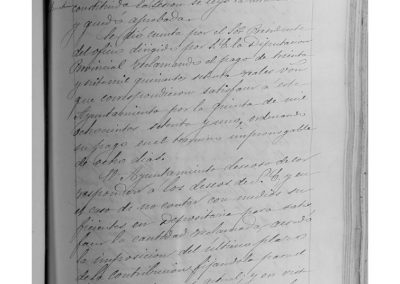 constituida la sesion se leyó la
y quedó aprobada.
Se dió cuenta por el Sor Presidente
del oficio dirigido por S. E. la Diputacion
Provincial reclamando el pago de treinta
y siete mil quinientos setenta reales vellon
que correspondieron satisfacer a este
Ayuntamiento por la quinta de mil
ochocientos setenta y uno, ordenando
su pago en el termino improrogable
de ocho dias.
El Ayuntamiento deseoso de cor
responder a los deseos de S. E. y en
el caso de no contar con fondos su
ficientes en depositaria para satis
facer la cantidad reclamada, acordó
la imposicion del ultimo plazo
de la contribucion fijando la
y en vista